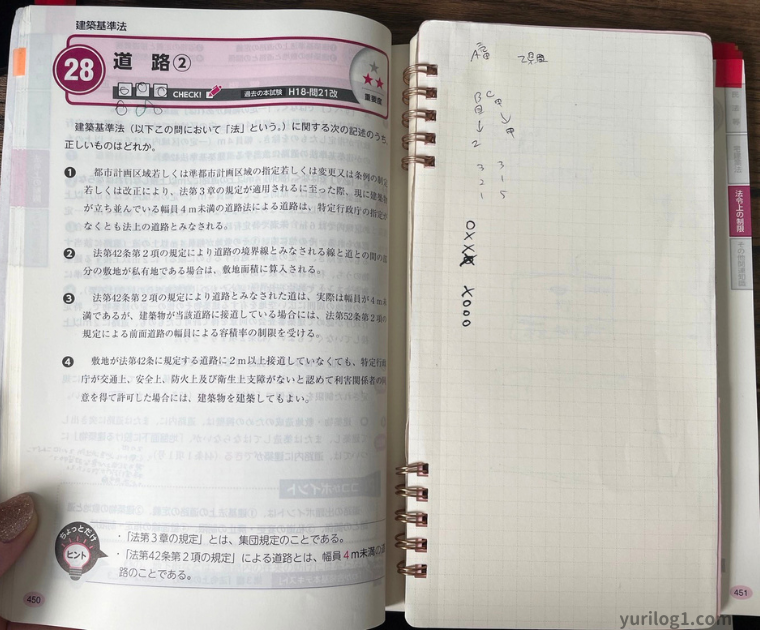 建築基準法
28 道 路②
CHECK! 過去の本試験 H18-問21改
重要度
建築基準法（以下この問において「法」という。）に関する次の記述のうち
正しいものはどれか。
❶ 都市計画区域若しくは準都市計画区域の指定若しくは変更又は条例の制定
若しくは改正により、法第３章の規定が適用されるに至った際、現に建築物
が立ち並んでいる幅員４ｍ未満の道路法による道路は、特定行政庁の指定が
なくとも法上の道路とみなされる。
❷ 法第42条第２項の規定により道路の境界線とみなされる線と道との間の
分の敷地が私有地である場合は、敷地面積に算入される。
❸ 法第42条第２項の規定により道路とみなされた道は、実際は幅員が４ｍ未
満であるが、建築物が当該道路に接道している場合には、法第52条第２項の
規定による前面道路の幅員による容積率の制限を受ける。
❹ 敷地が法第42条に規定する道路に２ｍ以上接道していなくても、特定行政
庁が交通上、安全上、防火上及び衛生上支障がないと認めて利害関係者の
意を得て許可した場合には、建築物を建築してもよい。
ちょっとだけ
ヒント
・「法第３章の規定」とは、集団規定のことである。
・「法第42条第２項の規定」による道路とは、幅員４ｍ未満の
路のことである。
450
A
B C
2
3 3
2 1
1 5
O X X
X O O O
法令上の制限
451
yurilog1.com